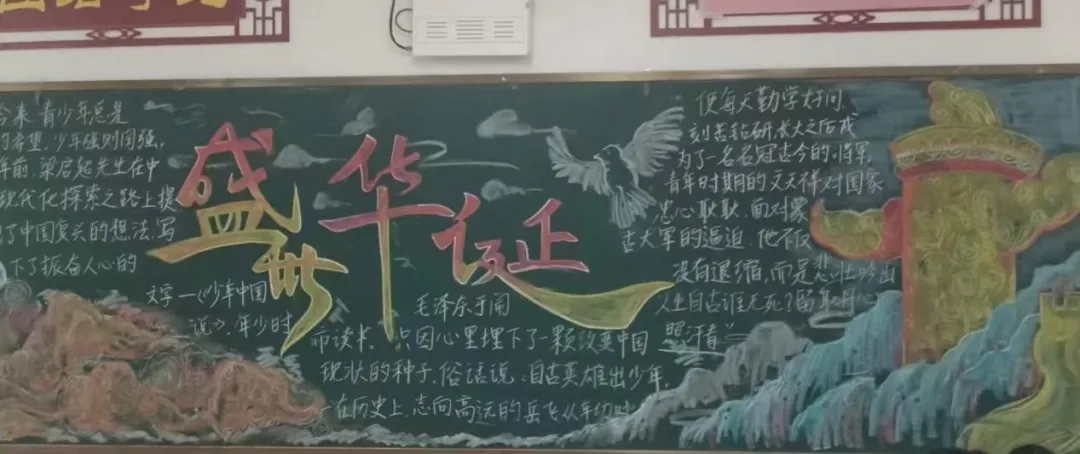 今来 青少年总是
的希望.少年强则国强.
年前,梁启超先生在中
现代化探索之路上提
了中国复兴的想法.写
下了振奋人心的
文字一《少年中国
说》.年少时
盛世华诞
毛泽东于闹
市读书,只因心里埋下了一颗改变中国
现状的种子.俗话说:自古英雄出少年.
在历史上,志向高远的岳飞从年幼时
便每天勤学好问.
刻苦钻研,长大之后成
为了一名名冠古今的将军.
青年时期的文天祥对国家
忠心耿耿.面对蒙
古大军的逼迫.他不仅
没有退缩,而是悲壮吟出
人生自古谁无死?留取丹心
照汗青"